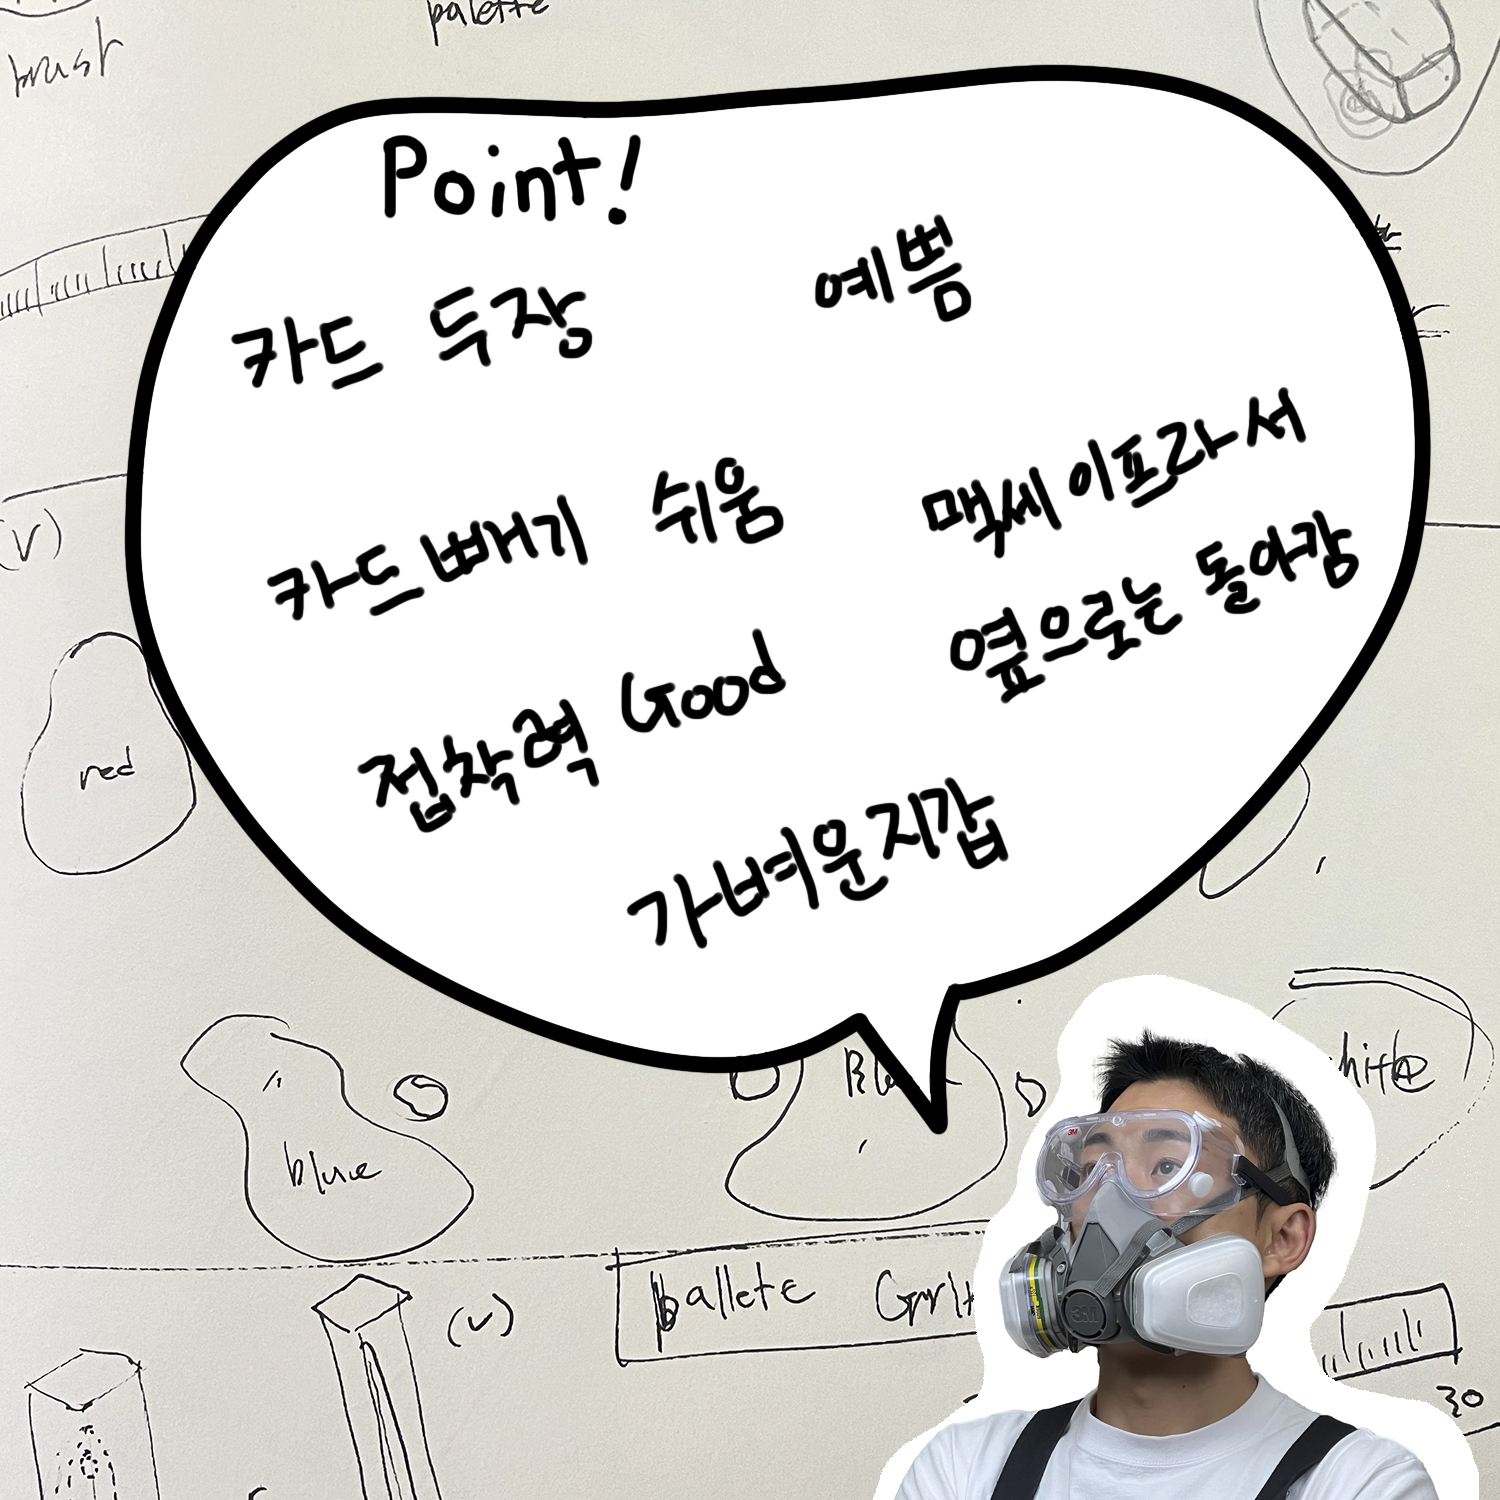 palette
brush
Point!
예쁨
카드 두장
카드빼기 쉬움
맥세이프라서
옆으로는 돌아감
(V)
접착력 Good
red
가벼운지갑
white
blue
3M
ballete
(V)
3M
30